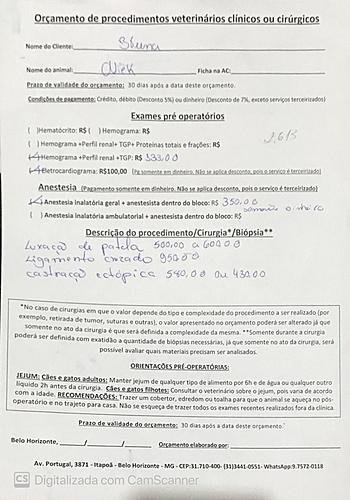 Orçamento de procedimentos veterinários clínicos ou cirúrgicos
Nome do Cliente:
Nome do animal: Nick Ficha na AC:
Prazo de validade do orçamento: 30 dias após a data deste orçamento.
Condições de pagamento: Crédito, débito (Desconto 5%) ou dinheiro (Desconto de 7%, exceto serviços terceirizados)
Exames pré operatórios
( )Hematócrito: R$ ( ) Hemograma: R$
( ) Hemograma +Perfil renal+ TGP+ Proteínas totais e frações: R$
( ) Hemograma +Perfil renal+TGP: R$ 333,00
( )Eletrocardiograma: R$100,00 (Pg somente em dinheiro. Não se aplica desconto, pois o serviço é terceirizado)
Anestesia (Pagamento somente em dinheiro. Não se aplica desconto, pois o serviço é terceirizado)
( )Anestesia inalatória geral + anestesista dentro do bloco: R$ 350,00
( ) Anestesia inalatória ambulatorial + anestesista dentro do bloco: R$
Descrição do procedimento/Cirurgia*/Biópsia**
Luxação de patela 500,00 a 600,00
Ligamento cruzado 950,00
castração ectópica 580,00 ou 430,00
*No caso de cirurgias em que o valor depende do tipo e complexidade do procedimento a ser realizado (por
exemplo, retirada de tumor, suturas e outras), o valor apresentado no orçamento poderá ser alterado já que
somente no ato da cirurgia é que será definida a complexidade da mesma. **Somente durante a cirurgia
poderá ser definida com exatidão a quantidade de biópsias necessárias, já que somente no ato da cirurgia, será
possível avaliar quais materiais precisam ser analisados.
ORIENTAÇÕES PRÉ-OPERATÓRIAS:
JEJUM: Cães e gatos adultos: Manter jejum de qualquer tipo de alimento por 6h e de água ou qualquer outro
líquido 2h antes da cirurgia. Cães e gatos filhotes: Consultar o veterinário sobre o jejum, pois varia de acordo
com a idade. RECOMENDAÇÕES: Trazer um cobertor, edredom ou toalha para que o animal se aqueça no pós-
operatório e no trajeto para casa. Não se esqueça de trazer todos os exames recentes realizados fora da clínica.
Prazo de validade do orçamento: 30 dias após a data deste orçamento.
Belo Horizonte, ____/____/____. Orçamento elaborado por:
Av. Portugal, 3871 - Itapoã - Belo Horizonte - MG - CEP:31.710-400- (31)3441-0551- WhatsApp:9.7572-0118
CS Digitalizada com CamScanner